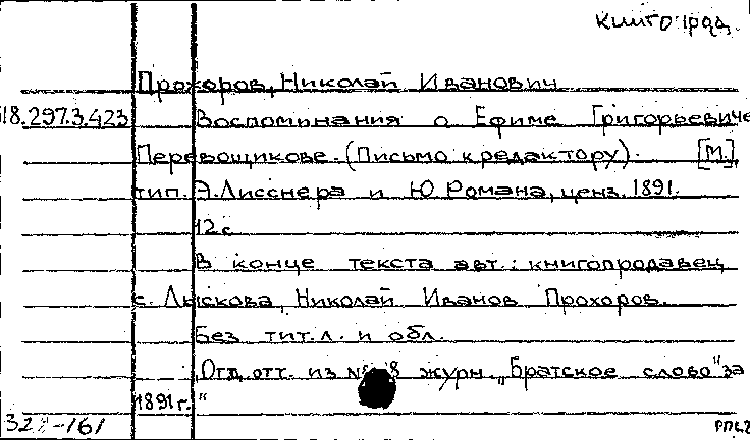 Книготорг.
Прохоров, Николай Иванович
18.297.3.423 Воспоминания о Ефиме Григорьевиче
Перевощикове. (Письмо к редактору). [М.],
тип. Э. Лисснера и Ю Романа, ценз. 1891.
12 с.
В конце текста авт.: книгопродавец
с. Лыскова, Николай Иванов Прохоров.
Без тит. л. и обл.
"Отд. отт. из № 8 журн. „Братское слово" за
1891 г."
322-161